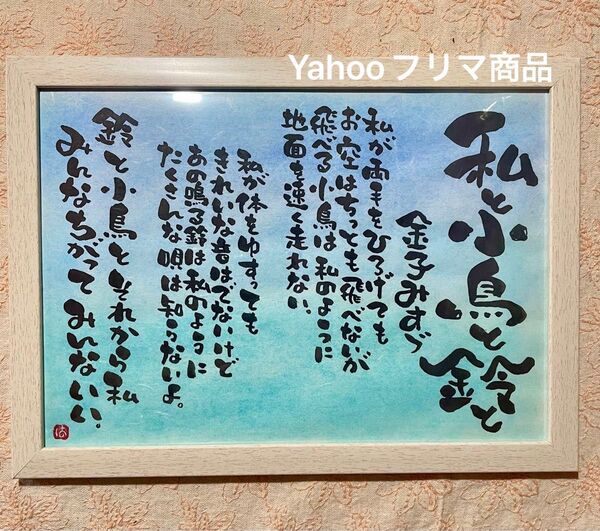 Yahooフリマ商品
私と小鳥と鈴と
金子みすゞ
私が両手をひろげても
お空はちっとも飛べないが
飛べる小鳥は私のように
地面を速く走れない。
私が体をゆすっても
きれいな音はでないけど
あの鳴る鈴は私のように
たくさんな唄は知らないよ。
鈴と小鳥とそれから私
みんなちがってみんないい。
は